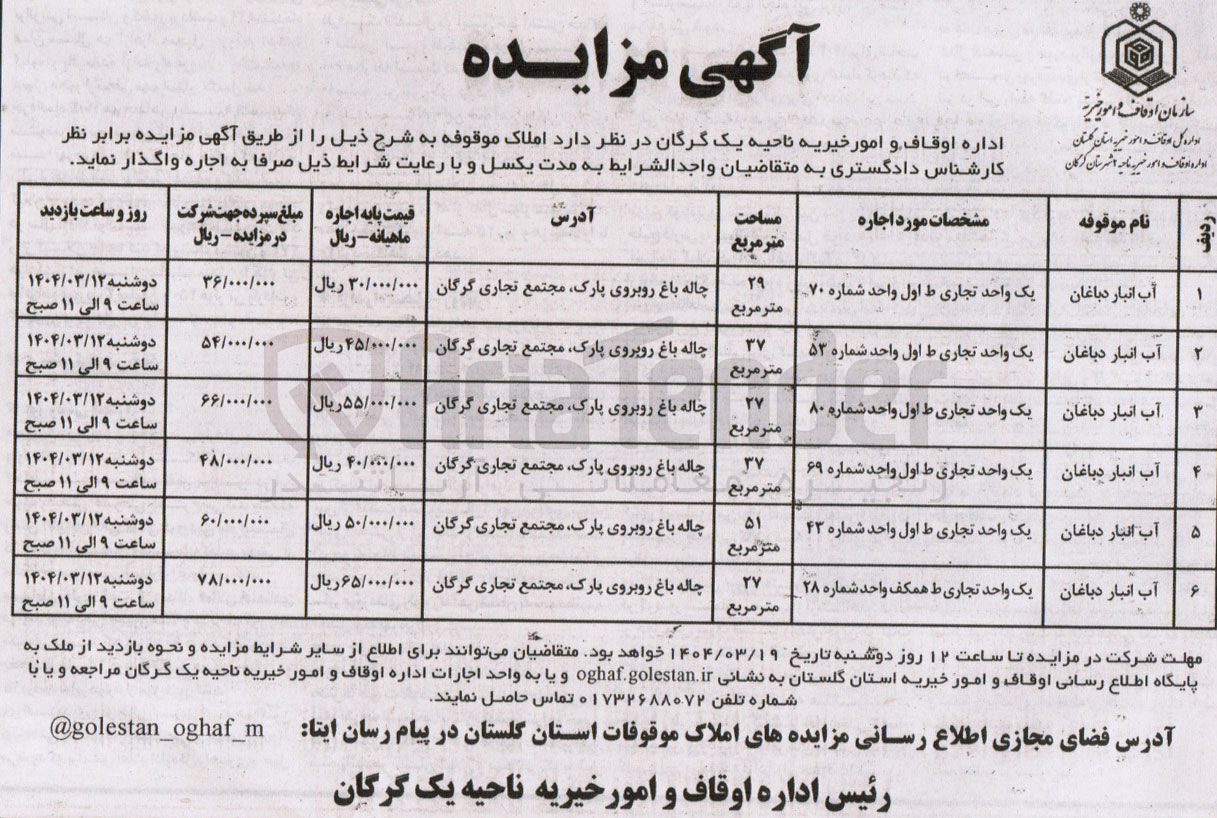 آگهی مزایده
سازمان اوقاف و امور خیریه
اداره کل اوقاف و امور خیریه استان گلستان
اداره اوقاف و امور خیریه ناحیه ۱ شهرستان گرگان
اداره اوقاف و امورخیریه ناحیه یک گرگان در نظر دارد املاک موقوفه به شرح ذیل را از طریق آگهی مزایده برابر نظر
کارشناس دادگستری به متقاضیان واجدالشرایط به مدت یکسل و با رعایت شرایط ذیل صرفا به اجاره واگذار نماید.
ردیف | نام موقوفه | مشخصات مورد اجاره | مساحت مترمربع | آدرس | قیمت پایه اجاره ماهیانه-ریال | مبلغ سپرده جهت شرکت در مزایده-ریال | روز و ساعت بازدید
۱ | آب انبار دباغان | یک واحد تجاری ط اول واحد شماره ۷۰ | ۲۹ مترمربع | چاله باغ روبروی پارک، مجتمع تجاری گرگان | ۳۰/۰۰۰/۰۰۰ ریال | ۳۶/۰۰۰/۰۰۰ | دوشنبه ۱۴۰۴/۰۳/۱۲ ساعت ۹ الی ۱۱ صبح
۲ | آب انبار دباغان | یک واحد تجاری ط اول واحد شماره ۵۳ | ۳۷ مترمربع | چاله باغ روبروی پارک، مجتمع تجاری گرگان | ۴۵/۰۰۰/۰۰۰ ریال | ۵۴/۰۰۰/۰۰۰ | دوشنبه ۱۴۰۴/۰۳/۱۲ ساعت ۹ الی ۱۱ صبح
۳ | آب انبار دباغان | یک واحد تجاری ط اول واحد شماره ۸۰ | ۲۷ مترمربع | چاله باغ روبروی پارک، مجتمع تجاری گرگان | ۵۵/۰۰۰/۰۰۰ ریال | ۶۶/۰۰۰/۰۰۰ | دوشنبه ۱۴۰۴/۰۳/۱۲ ساعت ۹ الی ۱۱ صبح
۴ | آب انبار دباغان | یک واحد تجاری ط اول واحد شماره ۶۹ | ۳۷ مترمربع | چاله باغ روبروی پارک، مجتمع تجاری گرگان | ۴۰/۰۰۰/۰۰۰ ریال | ۴۸/۰۰۰/۰۰۰ | دوشنبه ۱۴۰۴/۰۳/۱۲ ساعت ۹ الی ۱۱ صبح
۵ | آب انبار دباغان | یک واحد تجاری ط اول واحد شماره ۴۳ | ۵۱ مترمربع | چاله باغ روبروی پارک، مجتمع تجاری گرگان | ۵۰/۰۰۰/۰۰۰ ریال | ۶۰/۰۰۰/۰۰۰ | دوشنبه ۱۴۰۴/۰۳/۱۲ ساعت ۹ الی ۱۱ صبح
۶ | آب انبار دباغان | یک واحد تجاری ط همکف واحد شماره ۲۸ | ۲۷ مترمربع | چاله باغ روبروی پارک، مجتمع تجاری گرگان | ۶۵/۰۰۰/۰۰۰ ریال | ۷۸/۰۰۰/۰۰۰ | دوشنبه ۱۴۰۴/۰۳/۱۲ ساعت ۹ الی ۱۱ صبح
AriaTender
زنجیره معاملاتی آریاتندر
مهلت شرکت در مزایده تا ساعت ۱۲ روز دوشنبه تاریخ ۱۴۰۴/۰۳/۱۹ خواهد بود. متقاضیان می‌توانند برای اطلاع از سایر شرایط مزایده و نحوه بازدید از ملک به
پایگاه اطلاع رسانی اوقاف و امور خیریه استان گلستان به نشانی oghaf.golestan.ir و یا به واحد اجارات اداره اوقاف و امور خیریه ناحیه یک گرگان مراجعه و یا با
شماره تلفن ۰۱۷۳۲۶۸۸۰۷۲ تماس حاصل نمایند.
آدرس فضای مجازی اطلاع رسانی مزایده های املاک موقوفات استان گلستان در پیام رسان ایتا: @golestan_oghaf_m
رئیس اداره اوقاف و امورخیریه ناحیه یک گرگان